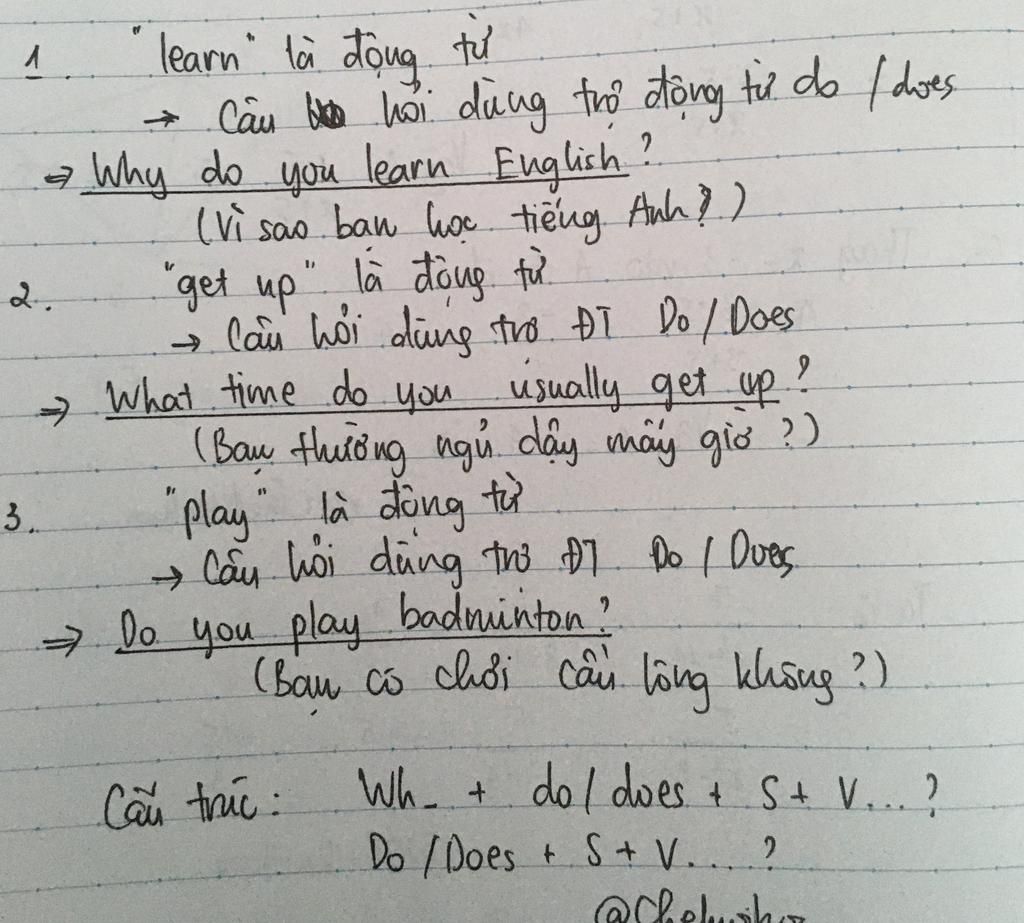 1. "learn" là động từ
→ Câu hỏi dùng trợ động từ do / does
⇒ Why do you learn English?
(Vì sao bạn học tiếng Anh?)
2. "get up" là động từ
→ Câu hỏi dùng trợ ĐT Do / Does
⇒ What time do you usually get up?
(Bạn thường ngủ dậy mấy giờ?)
3. "play" là động từ
→ Câu hỏi dùng trợ ĐT Do / Does
⇒ Do you play badminton?
(Bạn có chơi cầu lông không?)
Cấu trúc: Wh_ + do / does + S + V...?
Do / Does + S + V....?